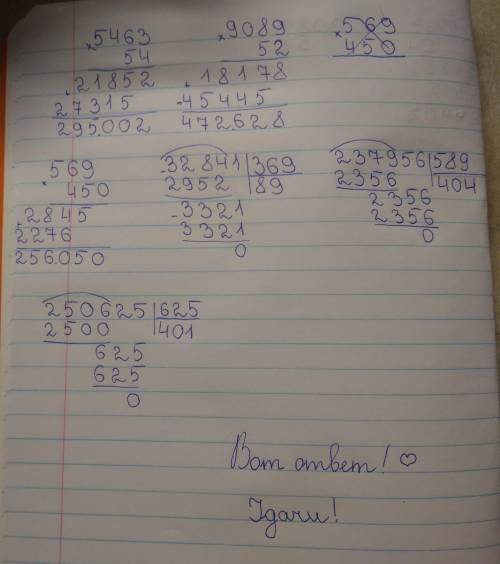 ×5463
54
21852
27315
295.002
×9089
52
18178
45445
472.628
×569
450
×569
450
2845
2276
256.050
-32841|369
2952 |89
-3321
3321
0
237956|589
2356 |404
2356
2356
0
250625|625
2500 |401
625
625
0
Вот ответ! ♡
Удачи!